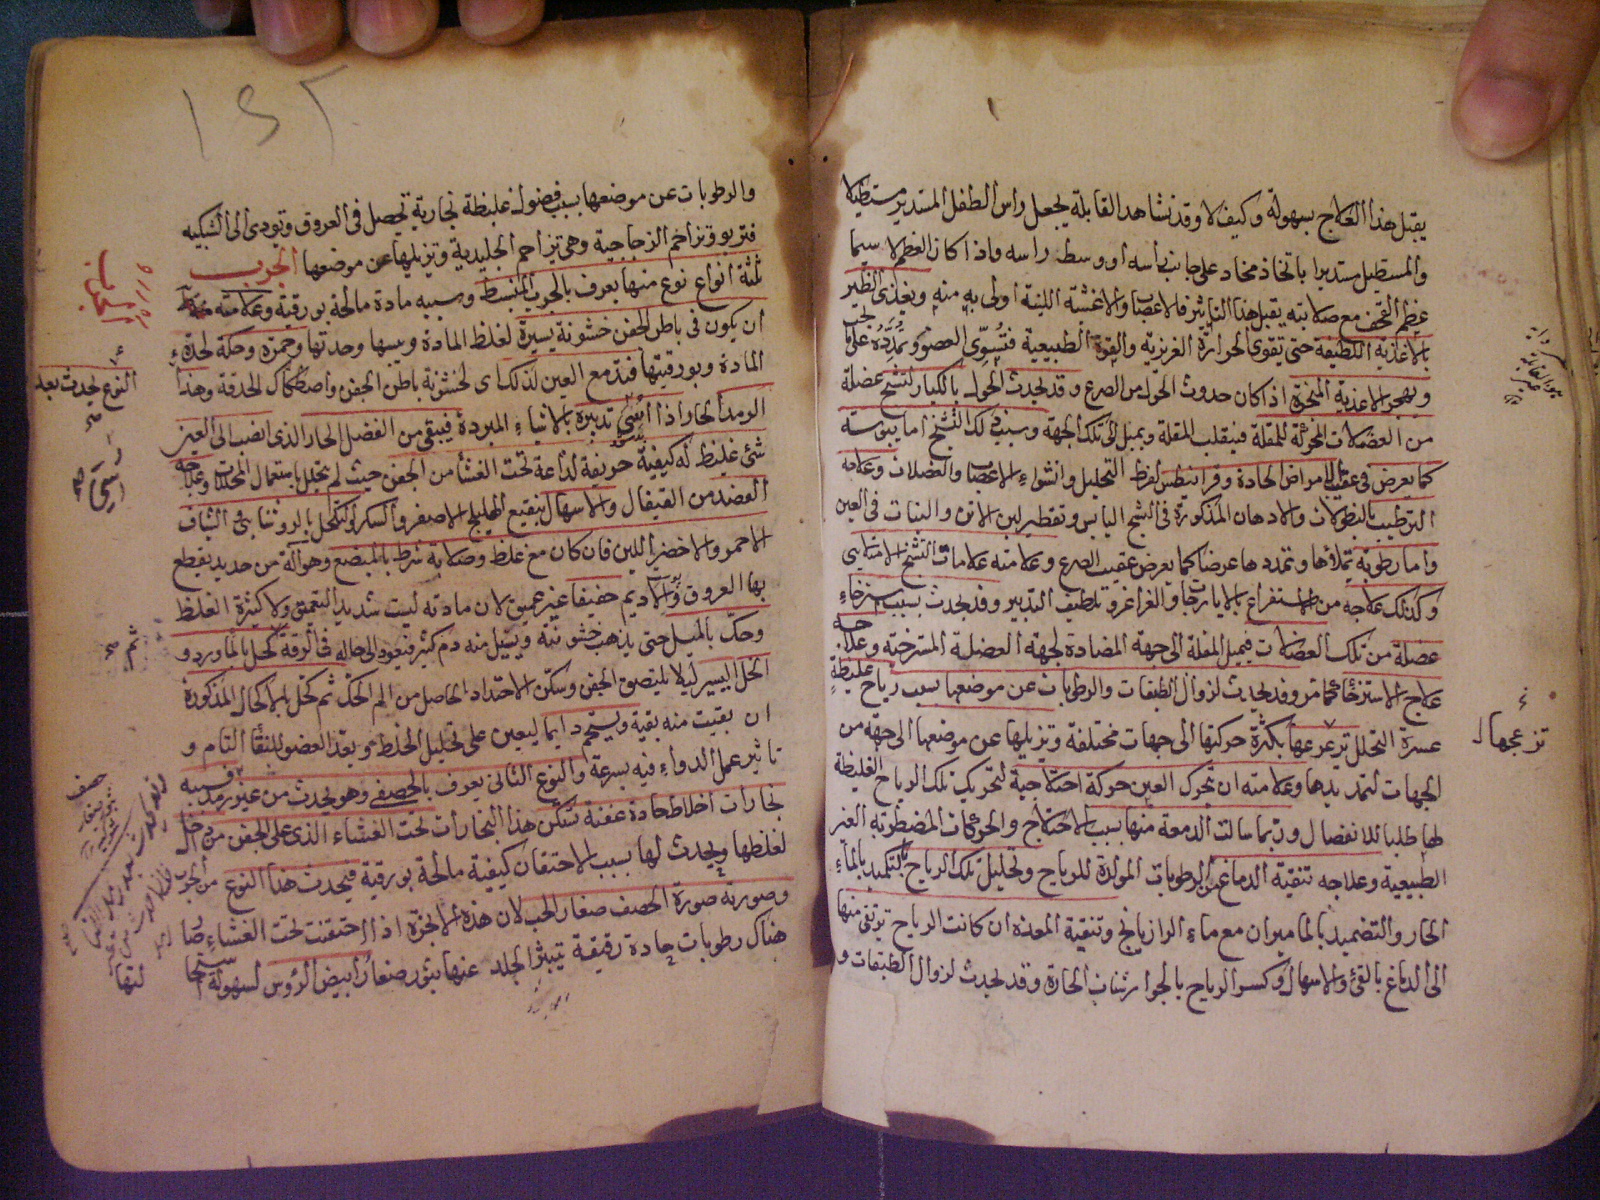 يقبل هذا العلاج بسهولة وكيف لا وقد نشاهد القابلة يجعل رأس الطفل المستدير مستطيلا
والمستطيل مستديرا باتخاذ مخاد على جانب رأسه او وسط راسه فاذا كان العظم لا سيما
عظم القحف مع صلابته يقبل هذا التأثير فالاعصاب والاغشية اللينة اولى به منه ويغذى الظئر
بالاغذية اللطيفة حتى تقوى الحرارة الغريزية والقوة الطبيعية فتسوى العضو وتمدده على
ويهجر الاغذية المبخرة اذ كان حدوث الحول من الصرع وقد يحدث الحول بالكبار لتشنج عضلة
من العضلات المحركة للمقلة فينقلب المقلة ويميل الى تلك الجهة وسبب ذلك التشنج اما يبوسة
كما يعرض فى عقيب الامراض الحادة وقرانيطس لفرط التحليل وانشواء الاعضاء والعضلات وعلاجه
الترطيب بالنطولات والادهان المذكورة فى التشنج اليابس وتقطير لبن الاتن والبنات فى العين
واما رطوبة تملأها وتمددها عرضا كما يعرض عقيب الصرع وعلامته علامات التشنج الامتلايى
وكذلك علاجه من الاستفراغ بالايارجات والغراغر وتلطيف التدبير وقد يحدث بسبب استرخاء
عضلة من تلك العضلات فيميل المقلة الى جهة المضادة لجهة العضلة المسترخية وعلاجه
علاج الاسترخاء كما مر وقد يحدث لزوال الطبقات والرطوبات عن موضعها بسبب رياح غليظة
عسرة التحلل تزعزعها بكثرة حركتها الى جهات مختلفة وتزيلها عن موضعها الى جهة من
تزعجها
الجهات لتمديدها وعلامته ان تحرك العين حركة اختلاجية لتحريك تلك الرياح الغليظة
لها طلبا للانفصال وربما سالت الدمعة منها بسبب الاختلاج والحركات المضطربة الغير
الطبيعية وعلاجه تنقية الدماغ من الرطوبات المولدة للرياح وتحليل تلك الرياح بالتكميد بالماء
الحار والتضميد بالماميران مع ماء الرازيانج وتنقية المعدة ان كانت الرياح ترتقى منها
الى الدماغ بالقئ والاسهال وكسر الرياح بالجوارشنات الحارة وقد يحدث لزوال الطبقات و
١٤٢
والرطوبات عن موضعها بسبب فضول غليظة بخارية تحصل فى العروق وتودى الى الشبكيه
فتربو وتزاحم الزجاجية وهى تزاحم الجليدية وتزيلها عن موضعها الجرب
ثلثة انواع نوع منها يعرف بالجرب المنبسط وسببه مادة مالحة بورقية وعلامته
ان يكون فى باطن الجفن خشونة يسيرة لغلظ المادة ويبسها وحدتها وحمرة وحكة لحدة
المادة وبورقيتها فتدمع العين لذلك اى لخشونة باطن الجفن واصطكاك الحدقة وهذا
النوع يحدث بعد
الرمد الحار اذا اسئ تدبيره بالاشياء المبردة فيبقى من الفضل الحار الذى انصب الى العين
شئ غليظ له كيفية حريفة لذاعة تحت الغشا من الجفن حيث لم يتحلل باستعمال المحللات وعلاجه
الفصد من القيفال والاسهال بنقيع الهليلج الاصفر والسكر والتكحل بالروشنايى والشياف
الاحمر والاخضر اللين فان كان مع غلظ وصلابة شرط بالمبضع وهو آلة من حديد يقطع
بها العروق والاديم خفيفا غير عميق لان مادته ليست شديد التعمق ولا كثيرة الغلظ
وحك بالميل حتى يذهب خشونته ويسيل منه دم كثير فيعود الى حاله فى الرقة
ثم
الخل اليسير ليلا يلتصق الجفن وسكن الاحتداد الحاصل من الم الحك ثم كحل بالاكحال المذكورة
ان بقيت منه بقية ويستحم دايما ليعين على تحليل الخلط ويعد العضو للنقاء التام و
تاثير عمل الدواء فيه بسرعة والنوع الثانى يعرف بالحصفى وهو يحدث من غير رمد وسببه
بخارات اخلاط حادة عفنة تتمكن هذا البخارات تحت الغشاء الذى على الجفن من داخل
لغلظها ويحدث لها بسبب الاحتقان كيفية مالحة بورقية فيحدث هذا النوع من الجرب
وصورته صورة الحصف صغار الحب لان هذه الابخرة اذا احتقنت تحت الغشاء
هناك رطوبات حادة رقيقة يتبثر الجلد عنها بثور صغار ابيض الرؤس لسهولة